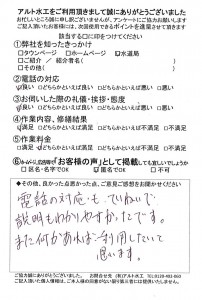 アルト水工をご利用頂きまして誠にありがとうございました
お忙しいところ誠に申し訳ございませんが、アンケートにご協力お願いします
ご記入頂いたお客様には、次回使用できるポイントを進呈させて頂きます
該当する□に印をつけてください
①弊社を知ったきっかけ
□タウンページ □ホームページ ☑水道局
□ご紹介(ご紹介者名 )
□その他( )
②電話の対応
☑良い □どちらかといえば良い □どちらかといえば悪い □悪い
③お伺いした際の礼儀・挨拶・態度
☑良い □どちらかといえば良い □どちらかといえば悪い □悪い
④作業内容、修繕結果
☑満足 □どちらかといえば満足 □どちらかといえば不満足 □不満足
⑤作業料金
☑満足 □どちらかといえば満足 □どちらかといえば不満足 □不満足
⑥ホームページ、広告等で「お客様の声」として掲載しても宜しいでしょうか
□区名・名字でOK ☑匿名でOK □不可
◆その他、良かった点悪かった点、ご意見ご感想をお聞かせください
電話の対応も、ていねいで
説明もわかりやすかったです。
また何かあればご利用したいと
思います。
ご協力誠にありがとうございました。 お問合せ先 (有)アルト水工 TEL:0120-493-060
ご記入頂いた個人情報は、ご本人様の同意がない限り第三者には提供いたしません。